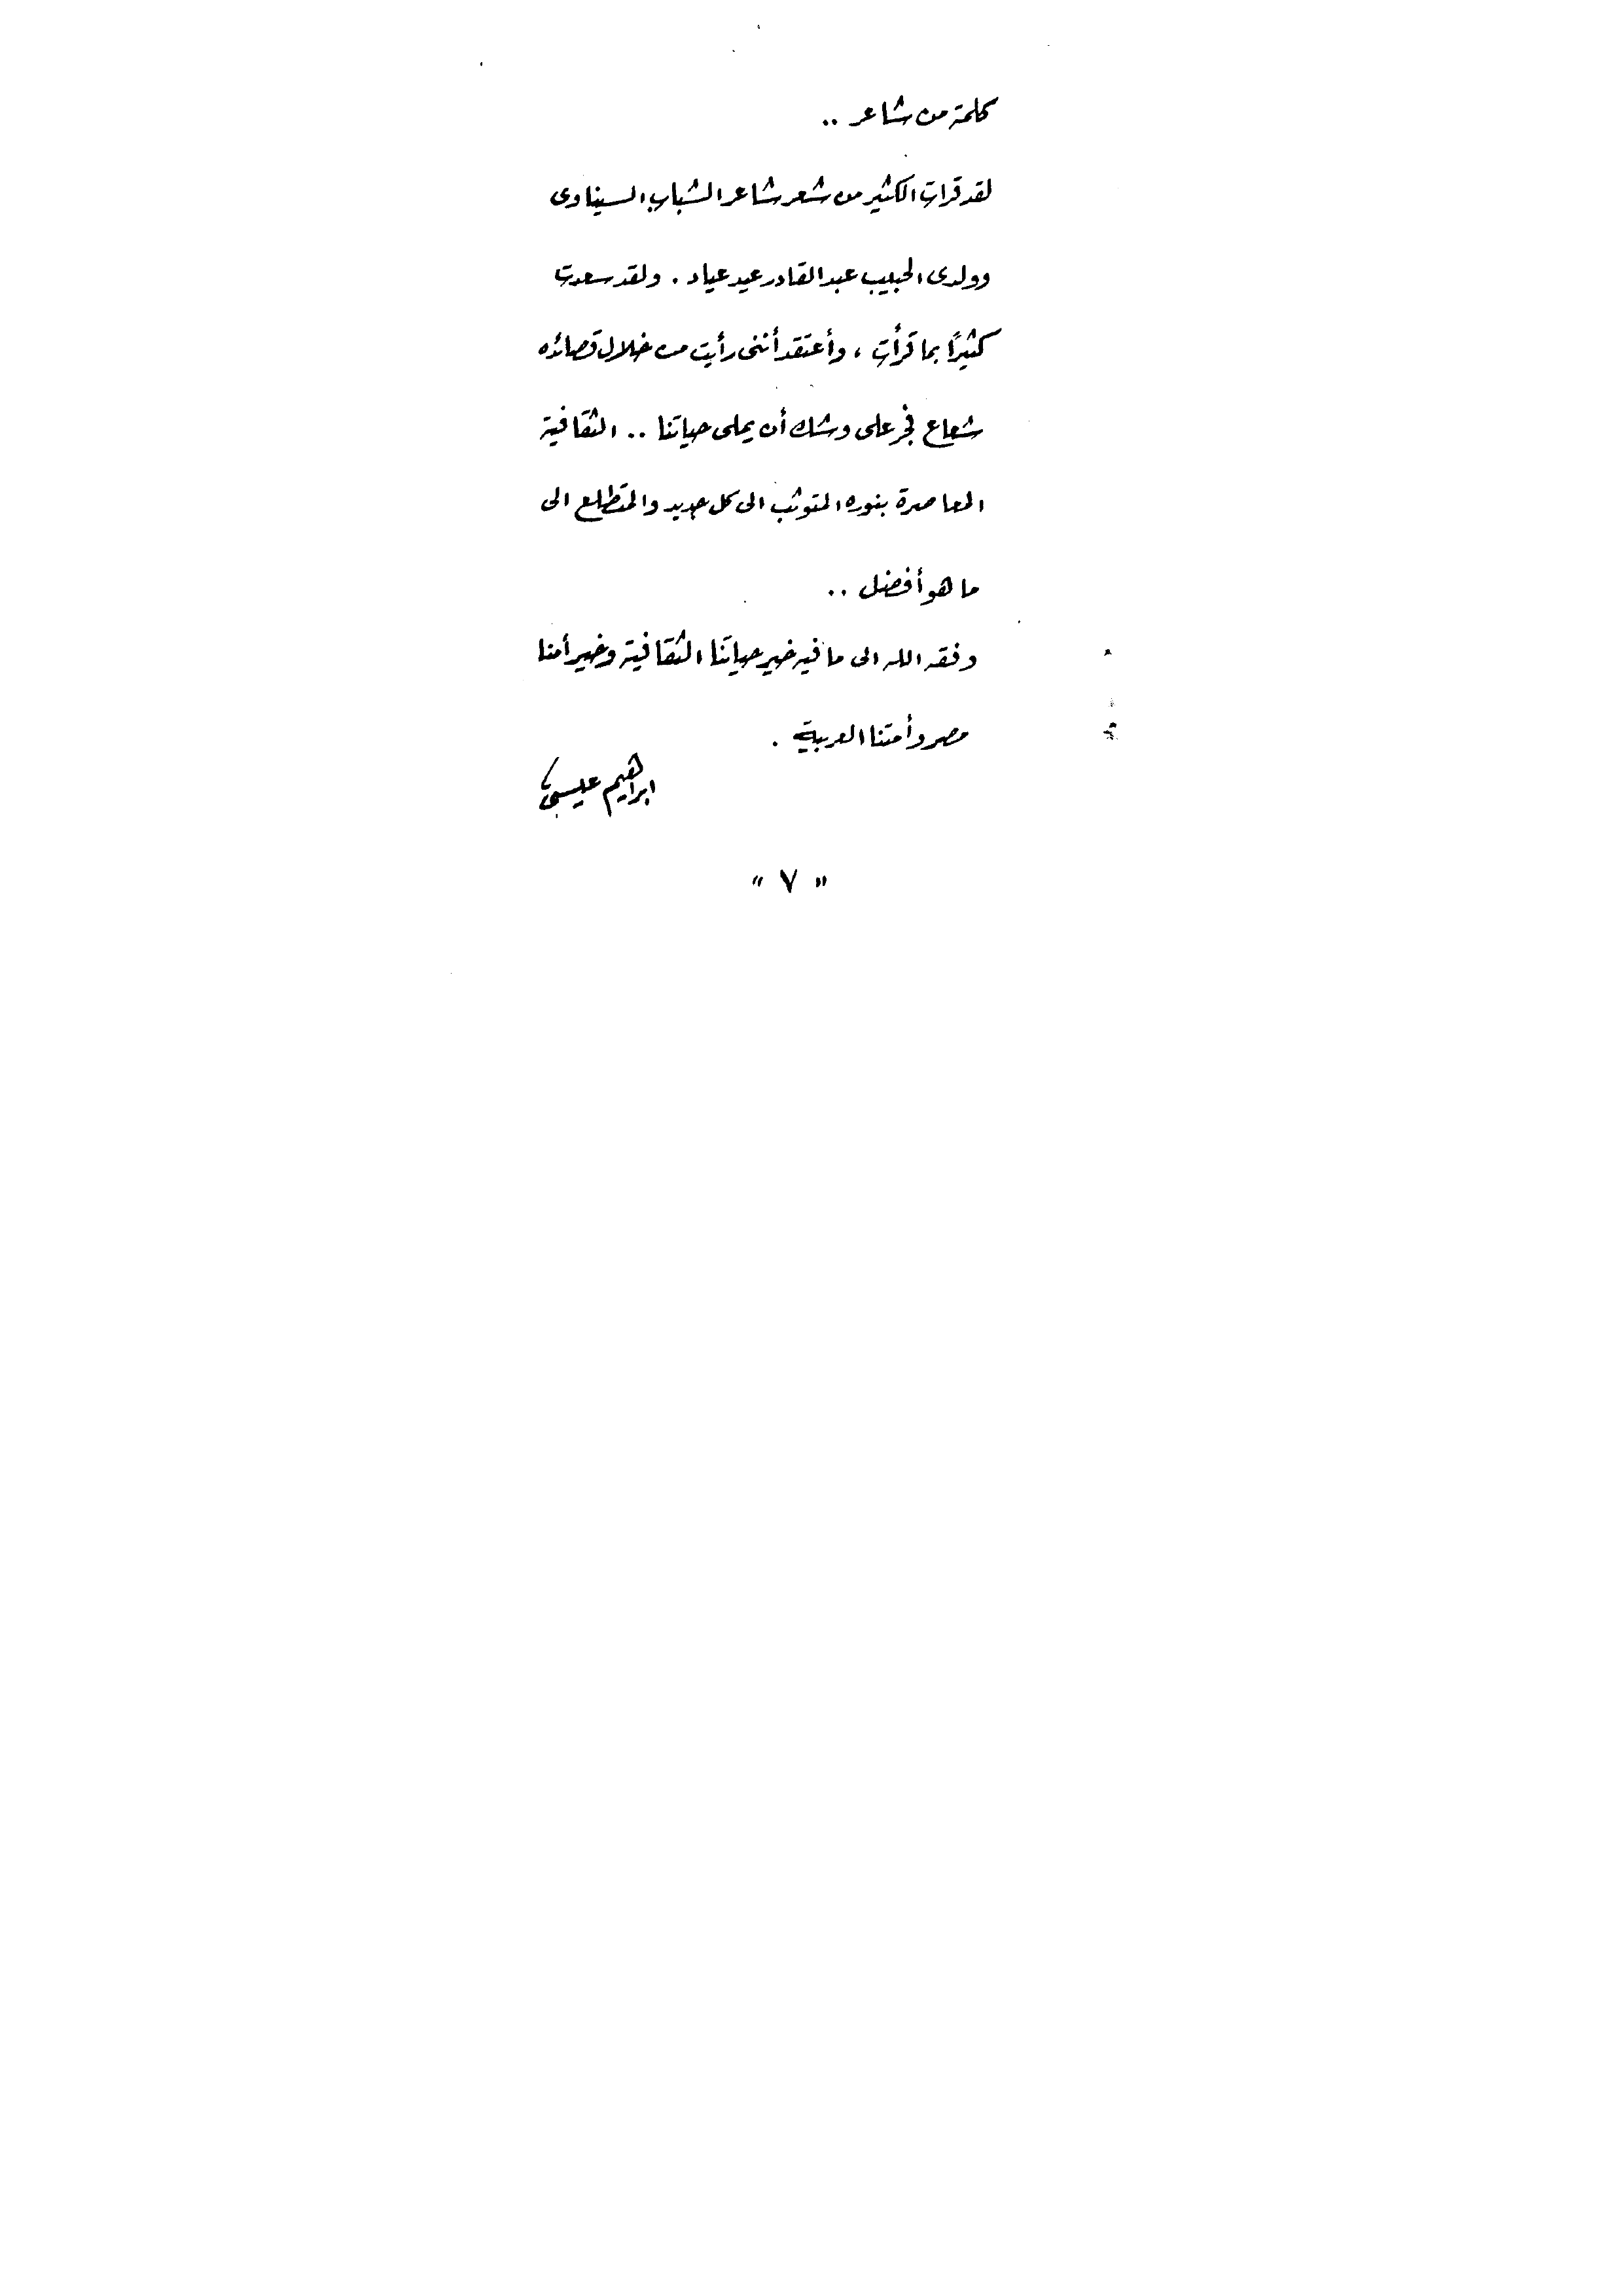 كلمة من شاعر ..
لقد قرات الكثير من شعر شاعر الشباب السيناوى
وولدى الحبيب عبد القادر عيد عياد . ولقد سعدت
كثيرًا بما قرأت ، وأعتقد أننى رأيت من خلال قصائده
شعاع فجر على وشك أن يملى حياتنا .. الثقافية
المعاصرة بنوره المتوثب الى كل جديد والمتطلع الى
ما هو أفضل ..
وفقه الله الى ما فيه خير حياتنا الثقافية وخير أمنا
مصر وأمتنا العربية .
ابراهيم عيسى
" ٧ "